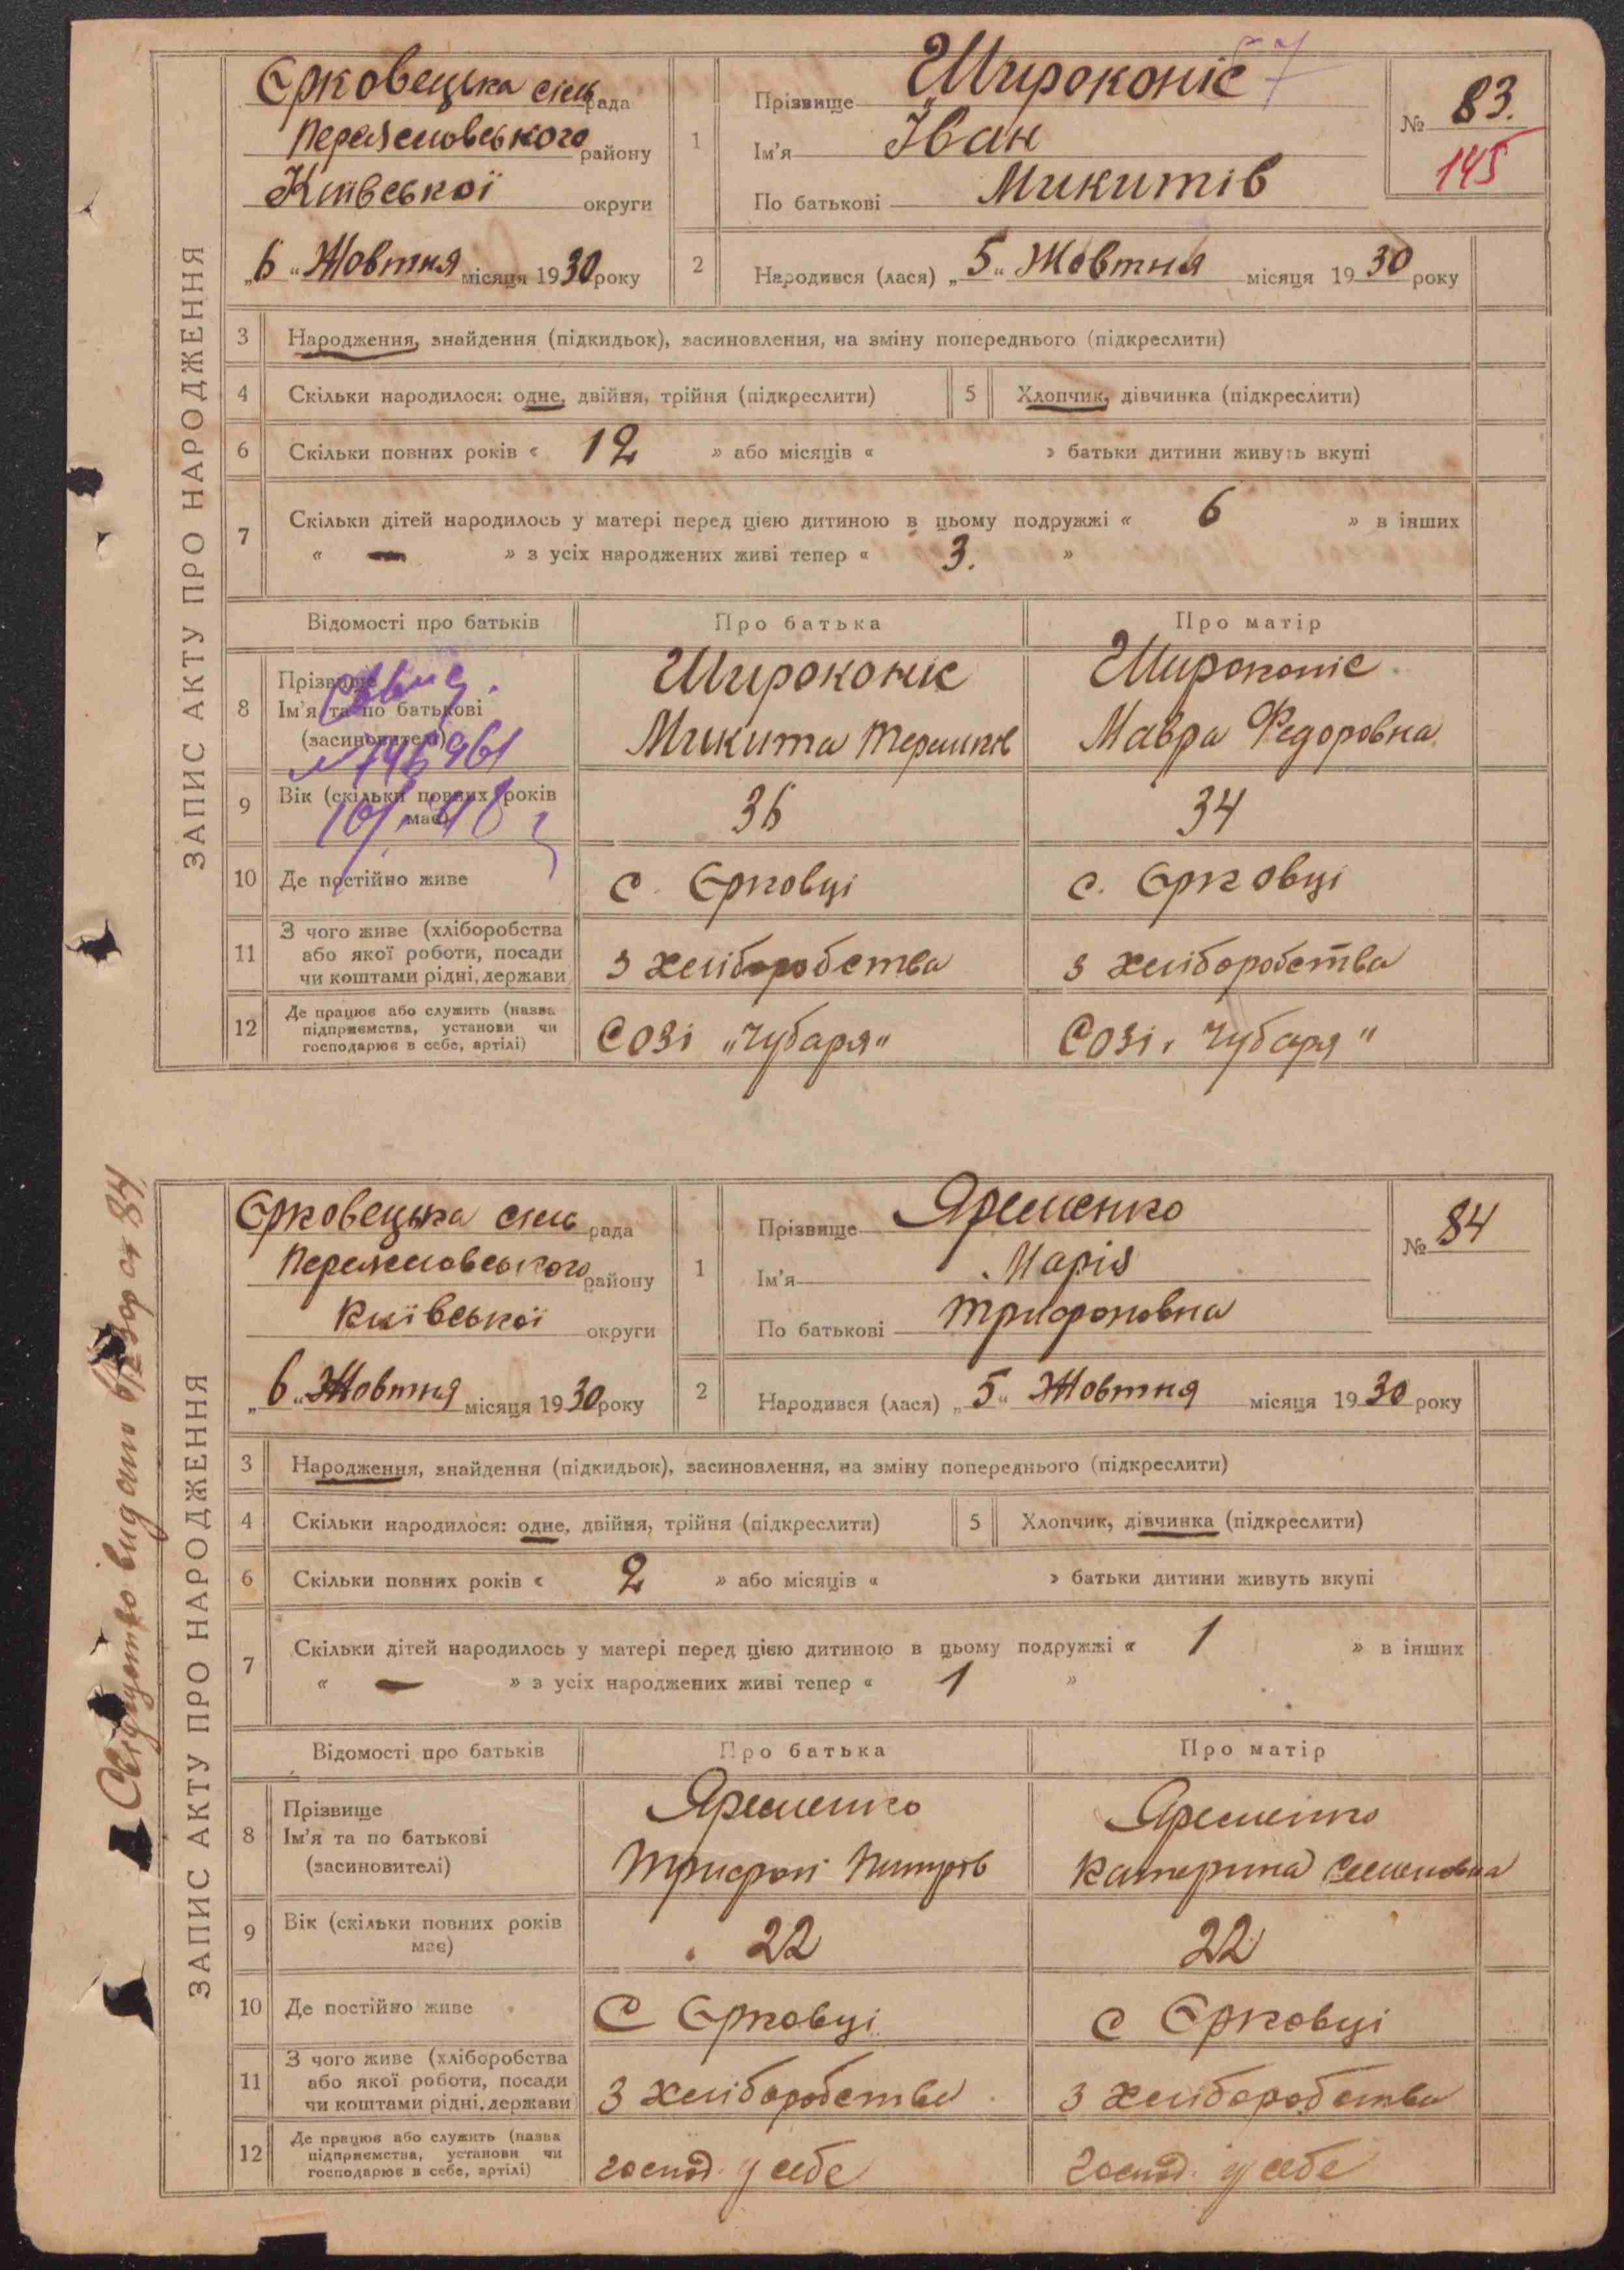 ЗАПИС АКТУ ПРО НАРОДЖЕННЯ
Єрковецька сіль рада
Переяславського району
Київської округи
„6“ Жовтня місяця 1930 року
1
Прізвище Широконіс
Ім'я Іван
По батькові Микитів
№ 83.
145
2
Народився (лася) „5“ Жовтня місяця 1930 року
3 Народження, знайдення (підкидьок), засиновлення, на зміну попереднього (підкреслити)
4 Скільки народилося: одне, двійня, трійня (підкреслити)
5 Хлопчик, дівчинка (підкреслити)
6 Скільки повних років « 12 » або місяців « » батьки дитини живуть вкупі
7 Скільки дітей народилось у матері перед цією дитиною в цьому подружжі « 6 » в інших
« — » з усіх народжених живі тепер « 3. »
Відомості про батьків Про батька Про матір
8 Прізвище
Ім'я та по батькові
(засиновителі)
Широконіс
Микита
Широконіс
Мавра Федоровна
9 Вік (скільки повних років має) 36 34
10 Де постійно живе с. Єрковці с. Єрковці
11 З чого живе (хліборобства
або якої роботи, посади
чи коштами рідні, держави
з хліборобства з хліборобства
12 Де працює або служить (назва
підприємства, установи чи
господарює в себе, артілі)
Созі „Чубаря“ Созі „Чубаря“
Свідуцтво видано
ЗАПИС АКТУ ПРО НАРОДЖЕННЯ
Єрковецька сіль рада
Переяславського району
Київської округи
„6“ Жовтня місяця 1930 року
1
Прізвище Яременко
Ім'я Марія
По батькові Трифоновна
№ 84
2
Народився (лася) „5“ Жовтня місяця 1930 року
3 Народження, знайдення (підкидьок), засиновлення, на зміну попереднього (підкреслити)
4 Скільки народилося: одне, двійня, трійня (підкреслити)
5 Хлопчик, дівчинка (підкреслити)
6 Скільки повних років « 2 » або місяців « » батьки дитини живуть вкупі
7 Скільки дітей народилось у матері перед цією дитиною в цьому подружжі « 1 » в інших
« — » з усіх народжених живі тепер « 1 »
Відомості про батьків Про батька Про матір
8 Прізвище
Ім'я та по батькові
(засиновителі)
Яременко
Трифон
Яременко
Катерина Семеновна
9 Вік (скільки повних років має) 22 22
10 Де постійно живе С Єрковці с Єрковці
11 З чого живе (хліборобства
або якої роботи, посади
чи коштами рідні, держави
З хліборобства З хліборобства
12 Де працює або служить (назва
підприємства, установи чи
господарює в себе, артілі)
господ. у себе господ. у себе